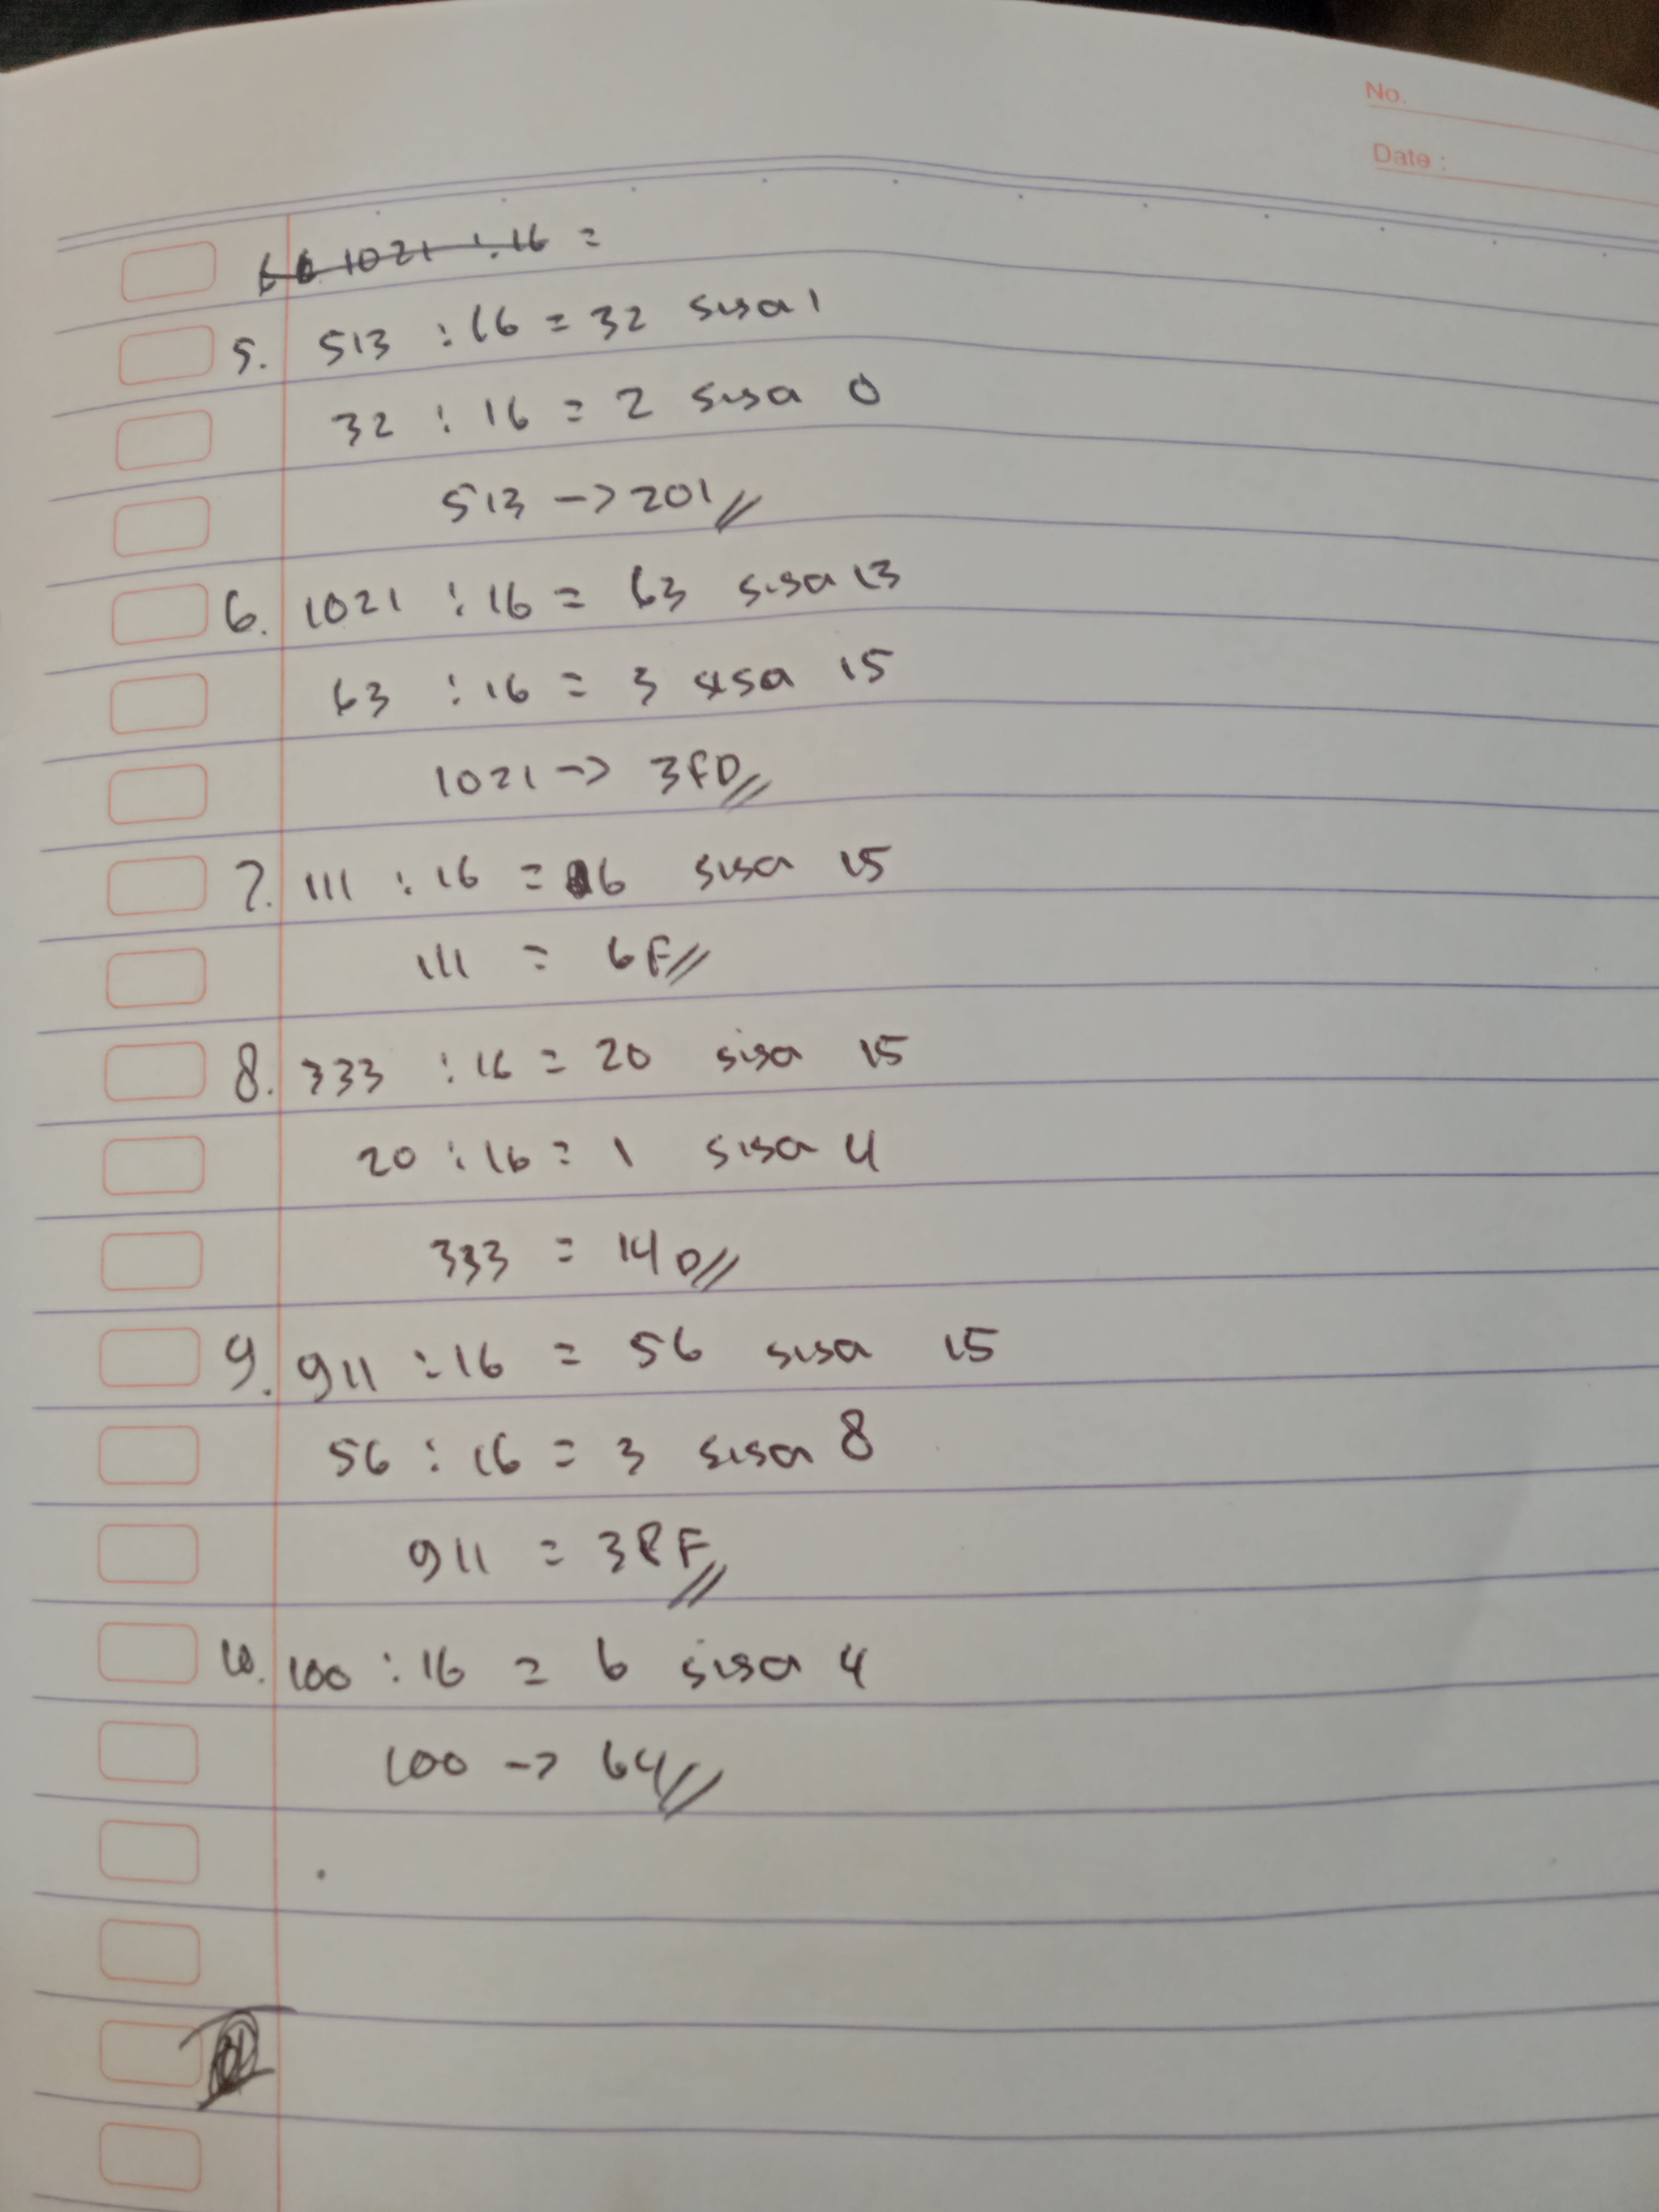 No.
Date :
1021 : 16 =
5. 513 : 16 = 32 sisa 1
32 : 16 = 2 sisa 0
513 -> 201
6. 1021 : 16 = 63 sisa 13
63 : 16 = 3 sisa 15
1021 -> 3FD
7. 111 : 16 = 6 sisa 15
111 = 6F
8. 333 : 16 = 20 sisa 15
20 : 16 = 1 sisa 4
333 = 14D
9. 911 : 16 = 56 sisa 15
56 : 16 = 3 sisa 8
911 = 38F
10. 100 : 16 = 6 sisa 4
100 -> 64